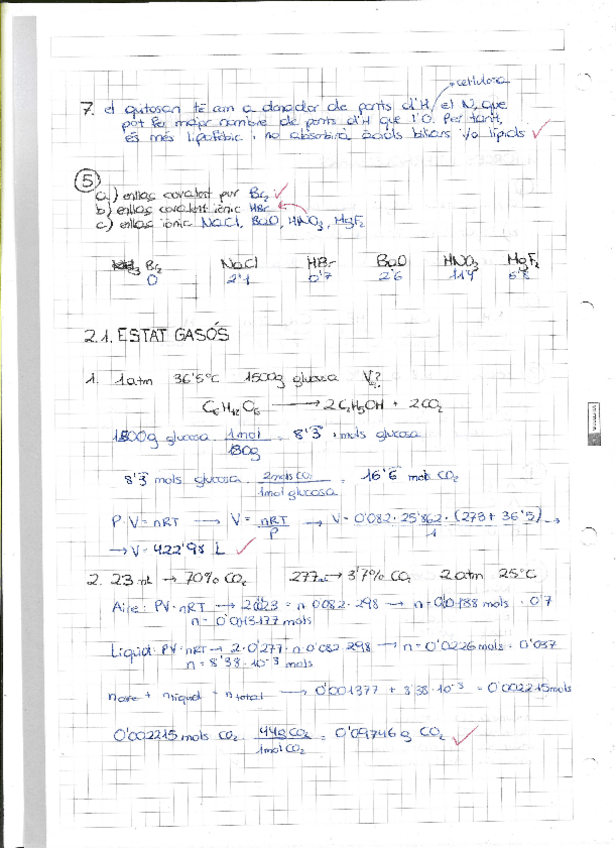 cel·lulosa
7. el quitosan té com a donador de ponts d'H, el N, que
pot fer major nombre de ponts d'H que l'O. Per tant,
és més lipofòbic i no absorbirà àcids biliars i/o lípids
5
a) enllaç covalent pur Br₂
b) enllaç covalent iònic HBr
c) enllaç iònic NaCl, BaO, HNO₃, MgF₂
Br₂ NaCl HBr BaO HNO₃ MgF₂
0 2'1 0'7 2'6 11'4
2.1. ESTAT GASÓS
1. 1 atm 36'5°C 1500g glucosa V?
C₆H₁₂O₆ → 2C₂H₅OH + 2CO₂
1500g glucosa · 1mol / 180g = 8'3 mols glucosa
8'3 mols glucosa · 2mols CO₂ / 1mol glucosa = 16'6 mols CO₂
P·V = nRT → V = nRT / P → V = 0'082 · 25'862 · (273 + 36'5) / 1 →
→ V = 422'98 L
2. 23 mL → 70% CO₂ 277 mL → 3'7% CO₂ 2 atm 25°C
Aire: PV = nRT → 2·0'023 = n 0'082 · 298 → · 0'7
n = 0'0013177 mols
Líquid: PV = nRT → 2·0'277 = n 0'082 · 298 → n = 0'0226 mols · 0'037
n = 8'38 · 10⁻³ mols
n aire + n líquid = n total → 0'001377 + 8'38 · 10⁻³ = 0'002215 mols
0'002215 mols CO₂ · 44g CO₂ / 1mol CO₂ = 0'09746 g CO₂